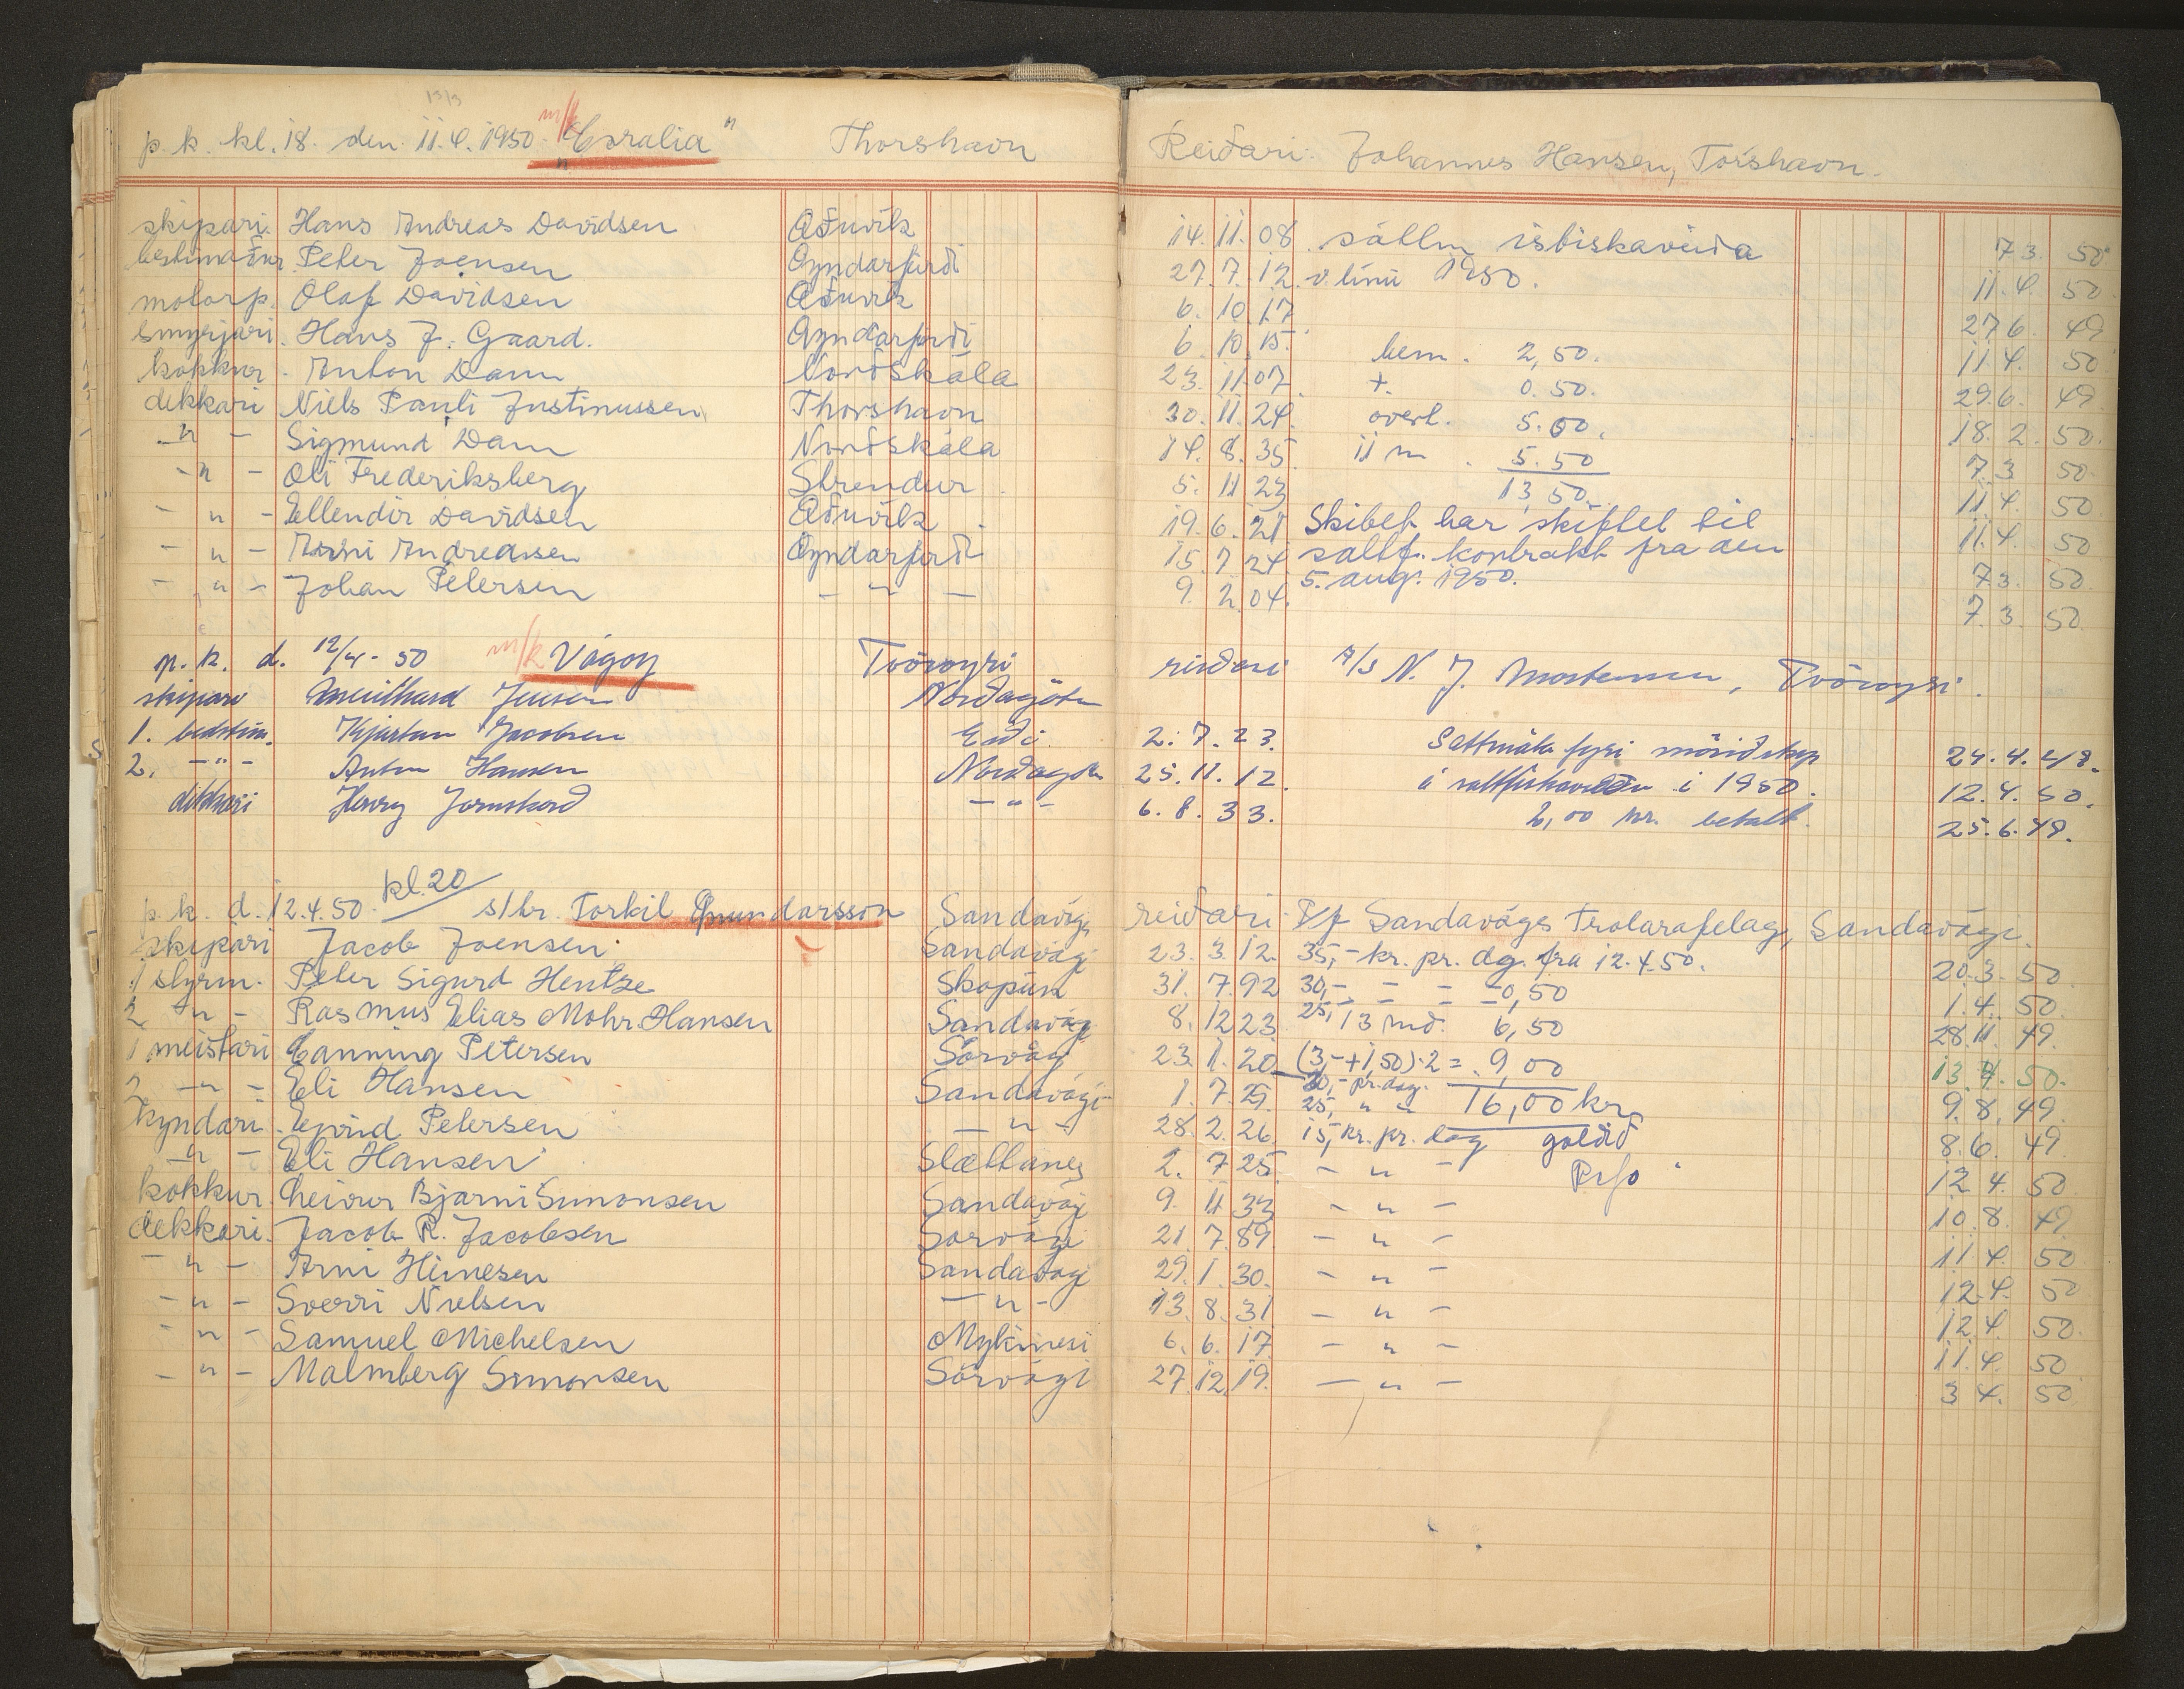 p. k. kl. 18. den 11.4.1950 m/k "Coralia" Thorshavn Reiðari: Johannes Hansen, Tórshavn.
skipari. Hans Andreas Davidsen Æðuvík 14. 11. 08. 7 3. 50
bestimaður Peter Joensen Oyndarfirði 27. 7. 12. v. línu 1950. 11.4. 50
motorp. Olaf Davidsen Æðuvík 6. 10. 17 27.6. 49
smyrjari. Hans J. Gaard. Oyndarfirði 6. 10. 15. bem. 2,50. 11.4. 50
kokkur. Anton Dam Norðskála 23. 11. 07 +. 0.50. 29.6. 49
dekkari Niels Pauli Justinussen Thorshavn 30. 11. 24. overl. 5.00. 18. 2. 50.
- " - Sigmund Dam Norðskála 14. 8. 35. 11 m. 5.50 7.3 50.
- " - Oli Frederiksberg Strendur 5. 11 23 13,50. 11.4. 50
- " - Ellendir Davidsen Æðuvík 19. 6. 21 Skibet har skiftet til 11.4. 50
- " - Arni Andreasen Oyndarfirði 15. 7 24 saltf. kontrakt fra den 7.3. 50
- " - Johan Petersen - " - 9. 2. 04. 5. aug. 1950. 7. 3. 50.
p. k. d. 12/4 - 50 m/k Vágoy Tvöroyri reiðari A/S N. J. Mortensen, Tvöroyri.
skipari Jensen Norðagötu
1. bedstim. Kjartan Jacobsen Eiði 2. 7. 23. 24.4.48.
2. - " - Anton Hansen Norðagötu 25. 11. 12. i 1950. 12.4.50.
dekkari Henry - " - 6. 8. 33. 2,00 kr. betalt. 25.6.49.
p. k. d. 12.4.50. kl. 20 s/tr. Torkil Onundarsson Sandavág reiðari P/f Sandavágs Trolarafelag, Sandavági.
skipari Jacob Joensen. Sandavág 23. 3. 12. 35,- kr. pr. dg. fra 12.4.50. 20.3. 50
1 styrm. Peter Sigurd Hentze Skopun 31. 7. 92 30,- - - - 0,50 1.4. 50
2 - " - Rasmus Elias Mohr Hansen Sandavág 8. 12 23. 25,- 13 md. 6,50 28.11. 49.
1 meistari Canning Petersen Sörvág 23. 1. 20 (3,- + 1,50)·2 = 9,00 13.4.50.
2 - " - Eli Hansen Sandavági 1. 7. 29. 30,- pr. dag. 16,00 kr. 9.8. 49
kyndari. Eyvind Petersen - " - 28. 2. 26. 25, " " 8.6. 49
- " - Eli Hansen Slættanes 2. 7 25. 15, kr. pr. dag goldið 12 4. 50
kokkur. Bjarni Simonsen Sandavág 9. 11 33 - " - 10.8. 49
dekkari. Jacob R. Jacobsen Sörvági 21. 7. 89 - " - 11 4. 50
- " - Arni Hinesen Sandavág 29. 1. 30. - " - 12.4. 50
- " - Sverri Nielsen - " - 13. 8. 31 - " - 12.4. 50
- " - Samuel Michelsen Mykinesi 6. 6. 17 - " - 11.4. 50
- " - Malmberg Simonsen Sörvági 27. 12. 19. - " - 3 4. 50